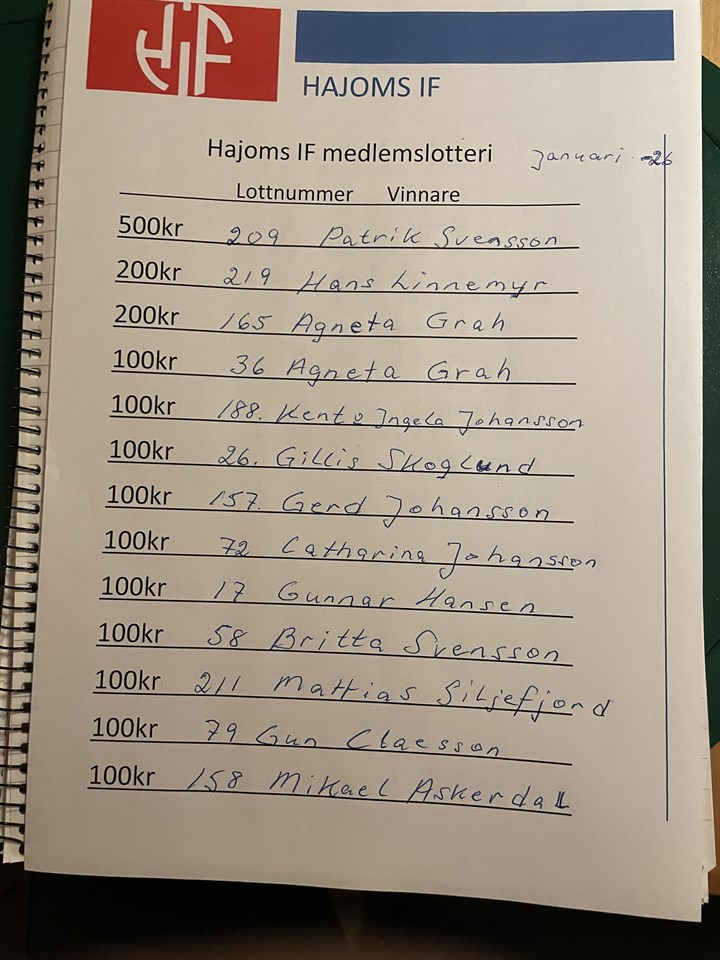 HIF
HAJOMS IF
Hajoms IF medlemslotteri Januari -26
Lottnummer Vinnare
500kr 209 Patrik Svensson
200kr 219 Hans Linnemyr
200kr 165 Agneta Grah
100kr 36 Agneta Grah
100kr 188. Kent o Ingela Johansson
100kr 26. Gillis Skoglund
100kr 157. Gerd Johansson
100kr 72 Catharina Johansson
100kr 17 Gunnar Hansen
100kr 58 Britta Svensson
100kr 211 Mattias Siljefjord
100kr 79 Gun Claesson
100kr 158 Mikael Askerdal